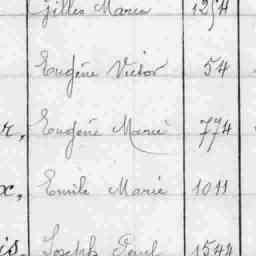 Gilles Marie 1254
Eugène Victor 54
r, Eugène Marie 774
x, Emile Marie 1011
is, Joseph Paul 1544